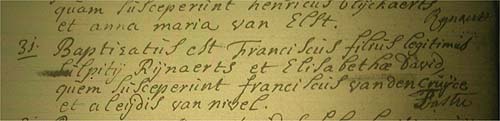 quam susceperunt henricus blijckaerts
et anna maria van Elst.
Rynaerts
31. Baptizatus est Franciscus filius legitimus
sulpitij Rijnaerts et Elisabethæ David
quem susceperunt franciscus vanden Cruyce
et aleijdis van nivel.